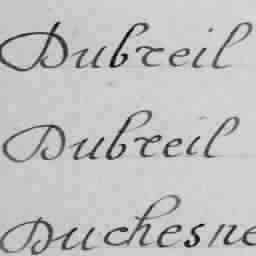 Dubreil
Dubreil
Duchesne